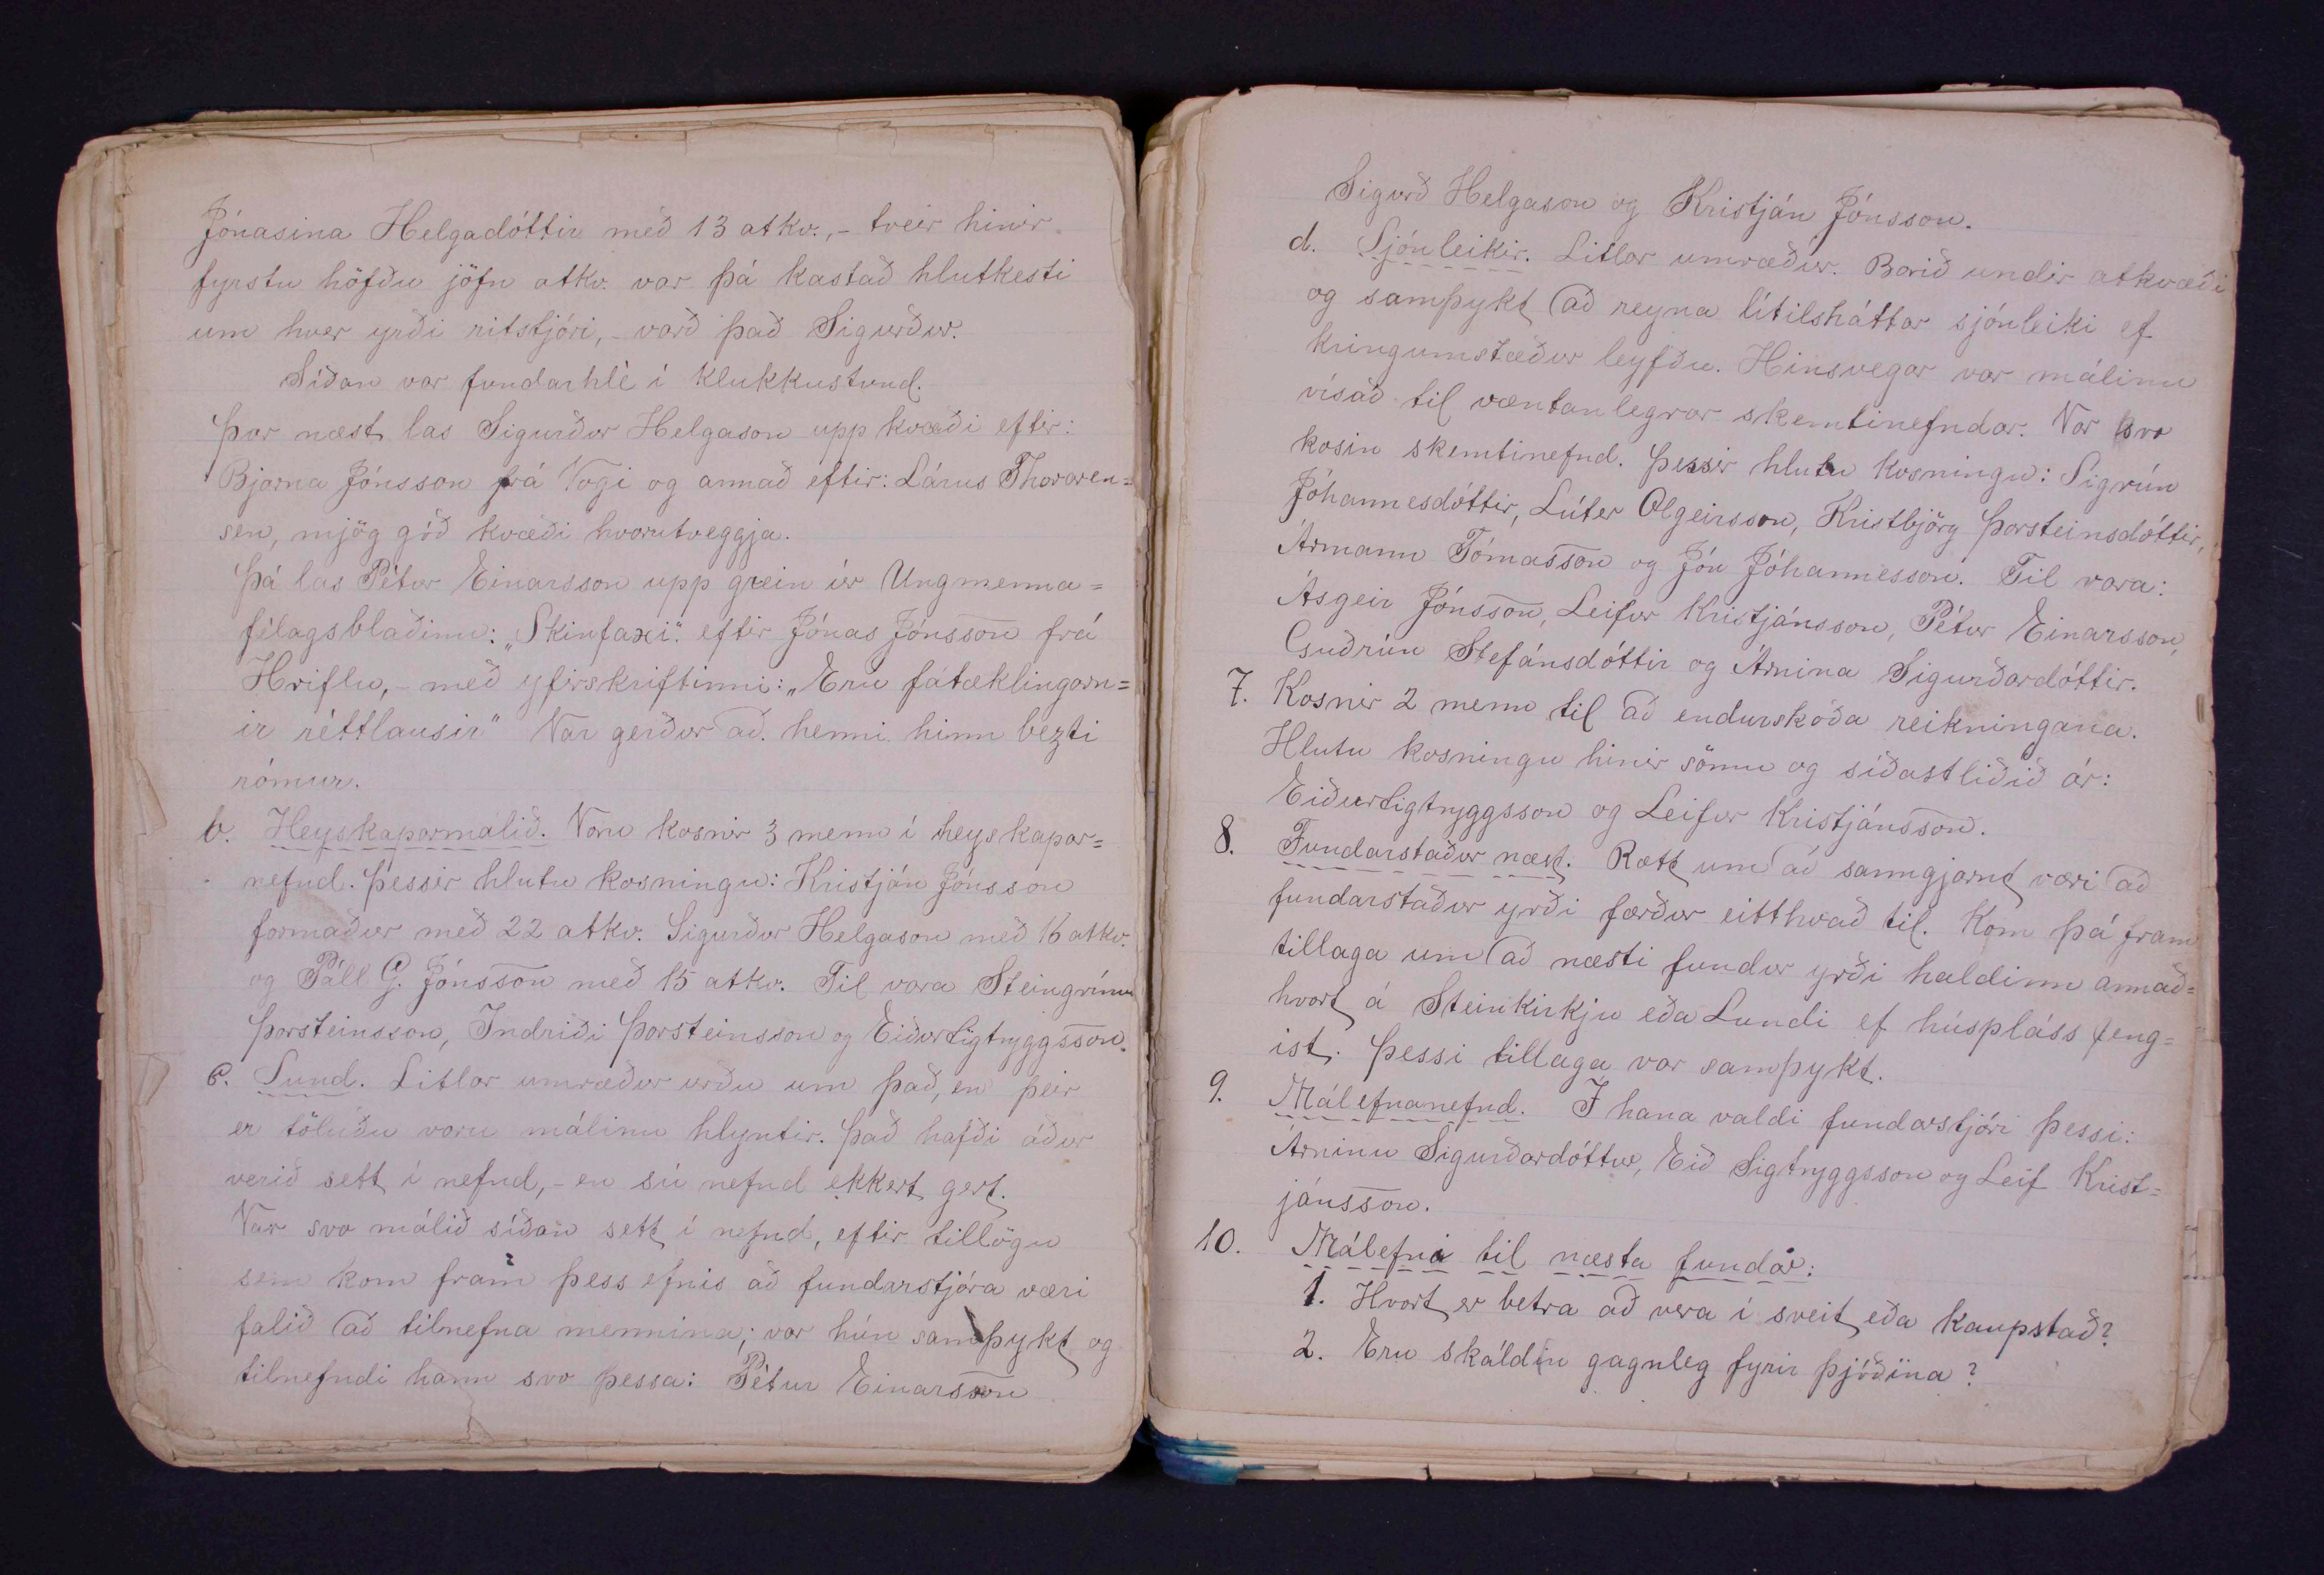 Jónasina Helgadóttir með 13 atkv., - tveir hinir
fyrstu höfðu jöfn atkv. var þá kastað hlutkesti
um hver yrði ritstjóri, - varð það Sigurður.
Síðan var fundarhlé í klukkustund.
Þar næst las Sigurður Helgason upp kvæði eftir:
Bjarna Jónsson frá Vogi og annað eftir: Lárus Thoraren=
sen, mjög góð kvæði hvorutveggja.
Þá las Pétur Einarsson upp grein úr Ungmenna=
félagsblaðinu: „Skinfaxi". eftir Jónas Jónsson frá
Hriflu, - með yfirskriftinni: „Eru fátæklingarn=
ir réttlausir" Var gerður að henni hinn bezti
rómur.
b. Heyskaparmálið. Voru kosnir 3 menn í heyskapar=
nefnd. Þessir hlutu kosningu: Kristján Jónsson
formaður með 22 atkv. Sigurður Helgason með 16 atkv.
og Páll G. Jónsson með 15 atkv. Til vara Steingrímur
Þorsteinsson, Indriði Þorsteinsson og Eiður Sigtryggsson.
c. Sund. Litlar umræður urðu um það, en þeir
er töluðu voru málinu hlyntir. Það hafði áður
verið sett í nefnd, - en sú nefnd ekkert gert.
Var svo málið síðan sett í nefnd, eftir tillögu
sem kom fram þess efnis að fundarstjóra væri
falið að tilnefna mennina; var hún samþykt og
tilnefndi hann svo þessa: Pétur Einarsson
Sigurð Helgason og Kristján Jónsson.
d. Sjónleikir. Litlar umræður. Borið undir atkvæði
og samþykt að reyna lítilsháttar sjónleiki ef
kringumstæður leyfðu. Hinsvegar var málinu
vísað til væntanlegrar skemtinefndar. Var svo
kosin skemtinefnd. Þessir hlutu kosningu: Sigrún
Jóhannesdóttir, Lúter Olgeirsson, Kristbjörg Þorsteinsdóttir,
Ármann Tómasson og Jón Jóhannesson. Til vara:
Ásgeir Jónsson, Leifur Kristjánsson, Pétur Einarsson,
Guðrún Stefánsdóttir og Árnina Sigurðardóttir.
7. Kosnir 2 menn til að endurskoða reikningana.
Hlutu kosningu hinir sömu og síðastliðið ár:
Eiður Sigtryggsson og Leifur Kristjánsson.
8. Fundarstaður næst. Rætt um að sanngjarnt væri að
fundarstaður yrði færður eitthvað til. Kom þá fram
tillaga um að næsti fundur yrði haldinn annað=
hvort á Steinkirkju eða Lundi ef húspláss feng=
ist. Þessi tillaga var samþykt.
9. Málefnanefnd. Í hana valdi fundarstjóri þessi:
Árninu Sigurðardóttur, Eið Sigtryggsson og Leif Krist=
jánsson.
10. Málefni til næsta fundar:
1. Hvort er betra að vera í sveit eða kaupstað?
2. Eru skáldin gagnleg fyrir þjóðina?